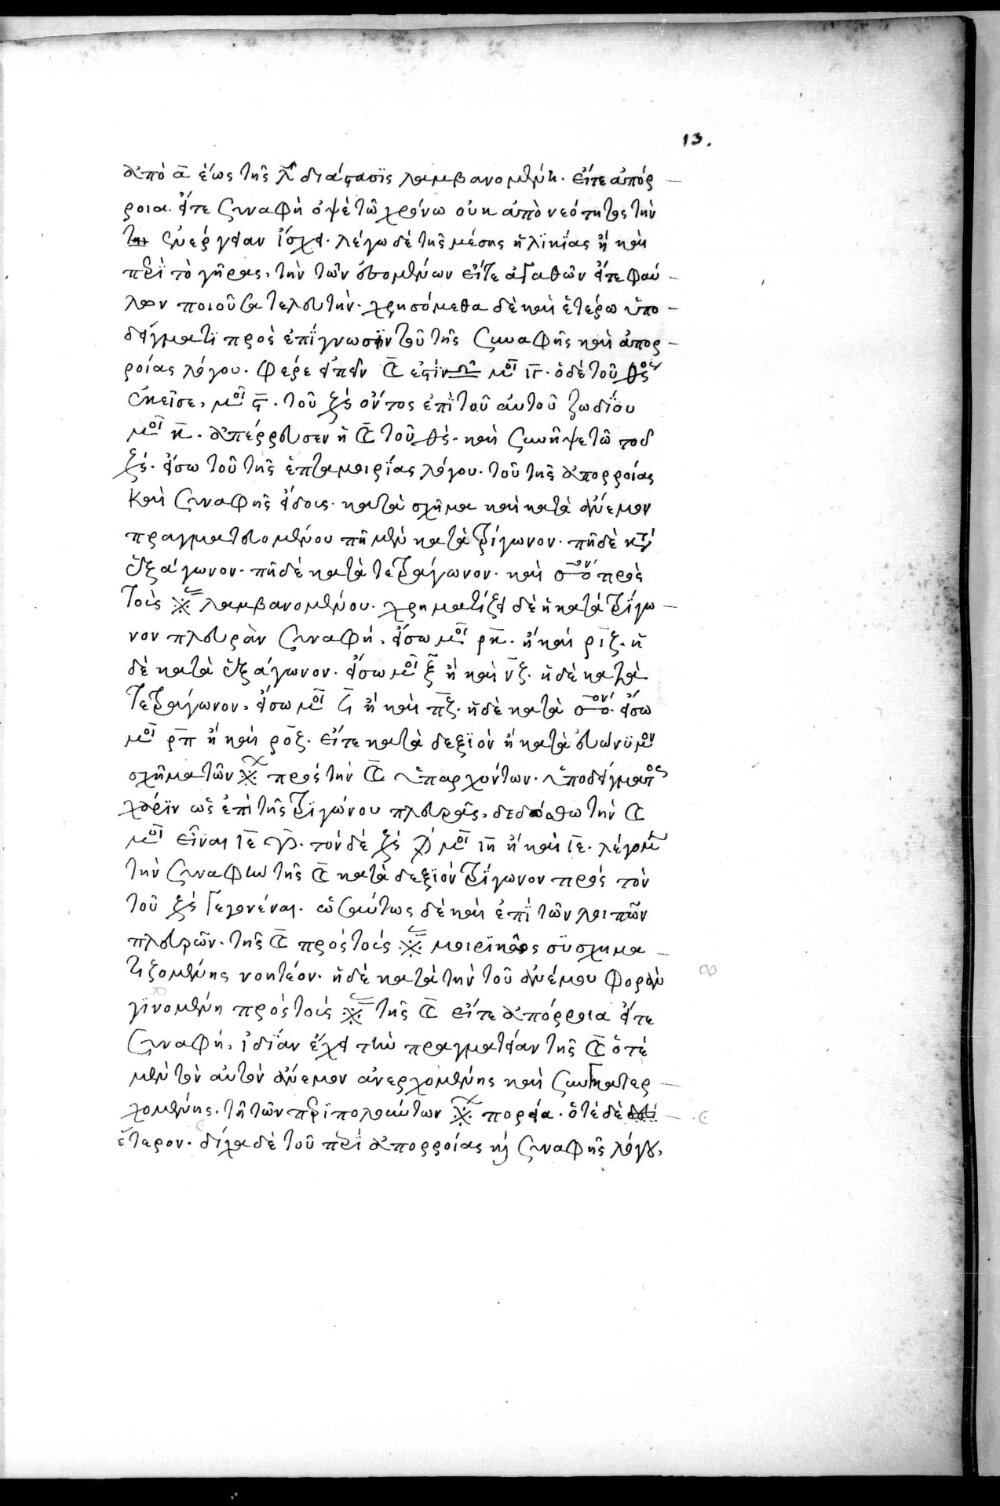 13.
ἀπὸ α̅ ἕως τῆς λ̅ διάστασϊς λαμβανομένη. εἴτε ἀπόρ
ροια εἴτε συναφὴ ὀψὲ τῶ χρόνω οὐκ ἀπὸ νεότητος τὴν
τὴν ἐνέργειαν ἴσχει. λέγω δὲ τῆς μέσης ἡλϊκίας ἢ καὶ
περὶ τὸ γῆρας, τὴν τῶν ἑπομένων εἴτε ἀγαθῶν εἴτε φαύ
λων ποιοῦσα τελευτήν. χρησόμεθα δὲ καὶ ἑτέρω ὑπο
δείγματϊ πρὸς ἐπίγνωσϊν τοῦ τῆς συναφῆς καὶ ἀπορ
ροίας λόγου. φέρε εἰπεῖν ☾ ἐστὶν ♎ μοῖ ιγ. ὁ δὲ τοῦ
ἐκεῖσε, μοῖ ς. τοῦ ὄντος ἐπὶ τοῦ αὐτοῦ ζωδίου
μοῖ κ. ἀπέρρευσεν ἡ ☾ τοῦ καὶ συνῆψε τῶ τοῦ
εἴσω τοῦ τῆς ἑπταμοιρίας λόγου. τοῦ τῆς ἀπορροίας
καὶ συναφῆς εἴδους. κατὰ σχῆμα καὶ κατὰ ἄνεμον
πραγματευομένου πῆ μὲν κατὰ τρίγωνον. πῆ δὲ κατὰ
ἑξάγωνον. πῆ δὲ κατὰ τετράγωνον. καὶ πρὸς
τοὺς λαμβανομένου. χρηματίζει δὲ ἡ κατὰ τρίγω
νον πλευρὰν συναφή, εἴσω μοῖ ρκ. ἢ καὶ ριζ. ἡ
δὲ κατὰ ἑξάγωνον. εἴσω μοῖ ξ ἢ καὶ νζ. ἡ δὲ κατὰ
τετράγωνον, εἴσω μοῖ ἢ καὶ πζ. ἡ δὲ κατὰ εἴσω
μοῖ ρπ ἢ καὶ ροζ. εἴτε κατὰ δεξϊὸν ἢ κατὰ εὐώνϋμον
σχῆμα τῶν πρὸς τὴν ☾ ὑπαρχόντων. ὑποδείγματος
χάρϊν ὡς ἐπὶ τῆς τρϊγώνου πλευρᾶς, δεδόσθω τὴν ☾
μοῖ εἶναι ιε τὸν δὲ μοῖ ιη ἢ καὶ ιε. λέγομεν
τὴν συναφὴν τῆς ☾ κατὰ δεξϊὸν τρίγωνον πρὸς τὸν
τοῦ γεγονέναι. ὡσαύτως δὲ καὶ ἐπὶ τῶν λοιπῶν
πλευρῶν. τῆς ☾ πρὸς τοὺς μοιρϊκῶς σϋσχημα
τιζομένης νοητέον. ἡ δὲ κατὰ τὴν τοῦ ἀνέμου φορὰν
γϊνομένη πρὸς τοὺς τῆς ☾ εἴτε ἀπόρροια εἴτε
συναφή, ἰδίαν ἔχει τὴν πραγματείαν τῆς ☾ ὁτὲ
μὲν τὸν αὐτὸν ἄνεμον ἀνερχομένης καὶ συγκατερ
χομένης. τῆ τῶν περϊπολούντων πορεία. ὁτὲ δὲ
ἕτερον. δίχα δὲ τοῦ περὶ ἀπορροίας καὶ συναφῆς λόγου,